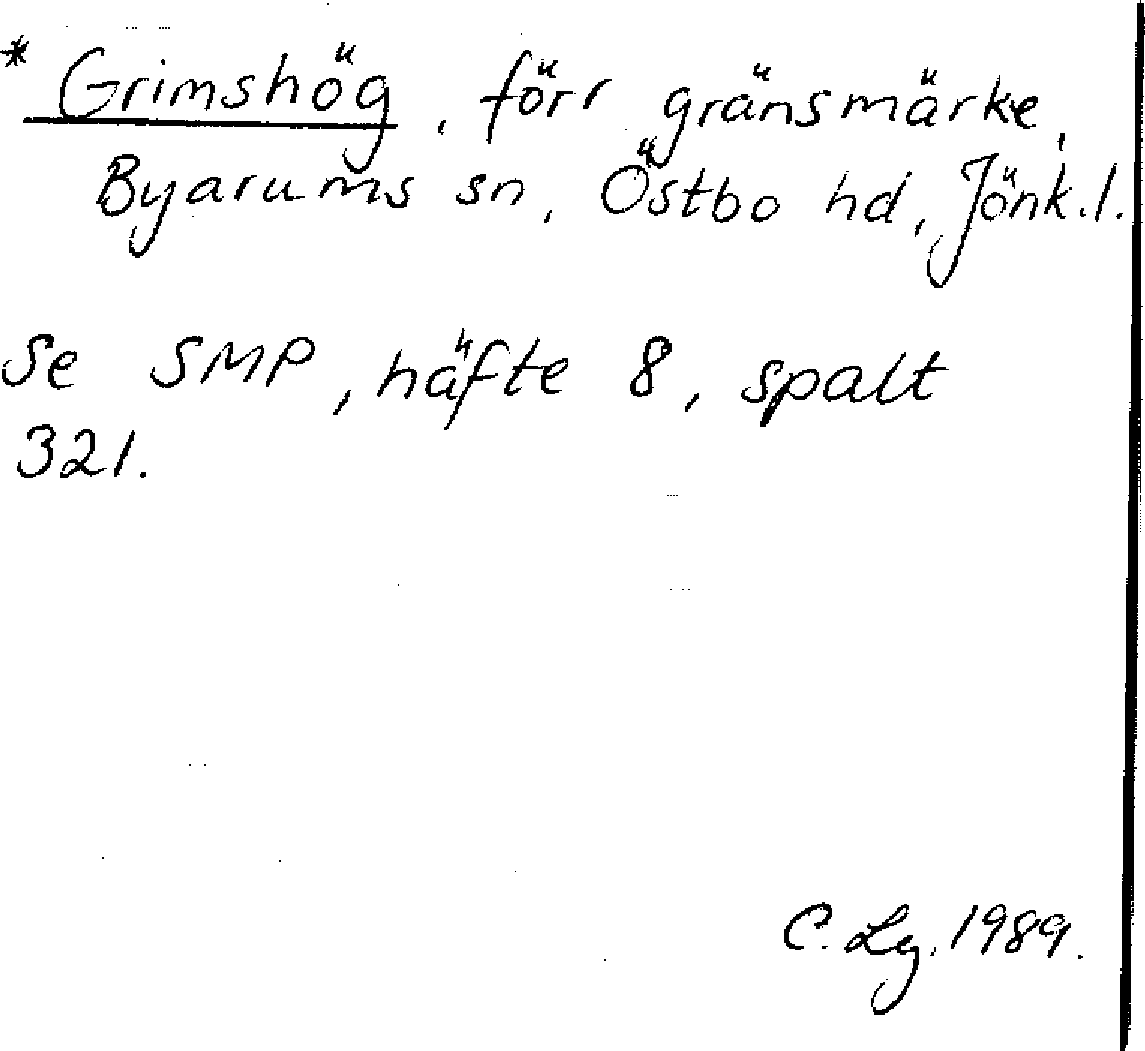 * Grimshög, förr gränsmärke,
Byarums sn, Östbo hd, Jönk.l.
Se SMP, häfte 8, spalt
321.
C. Lg. 1989.